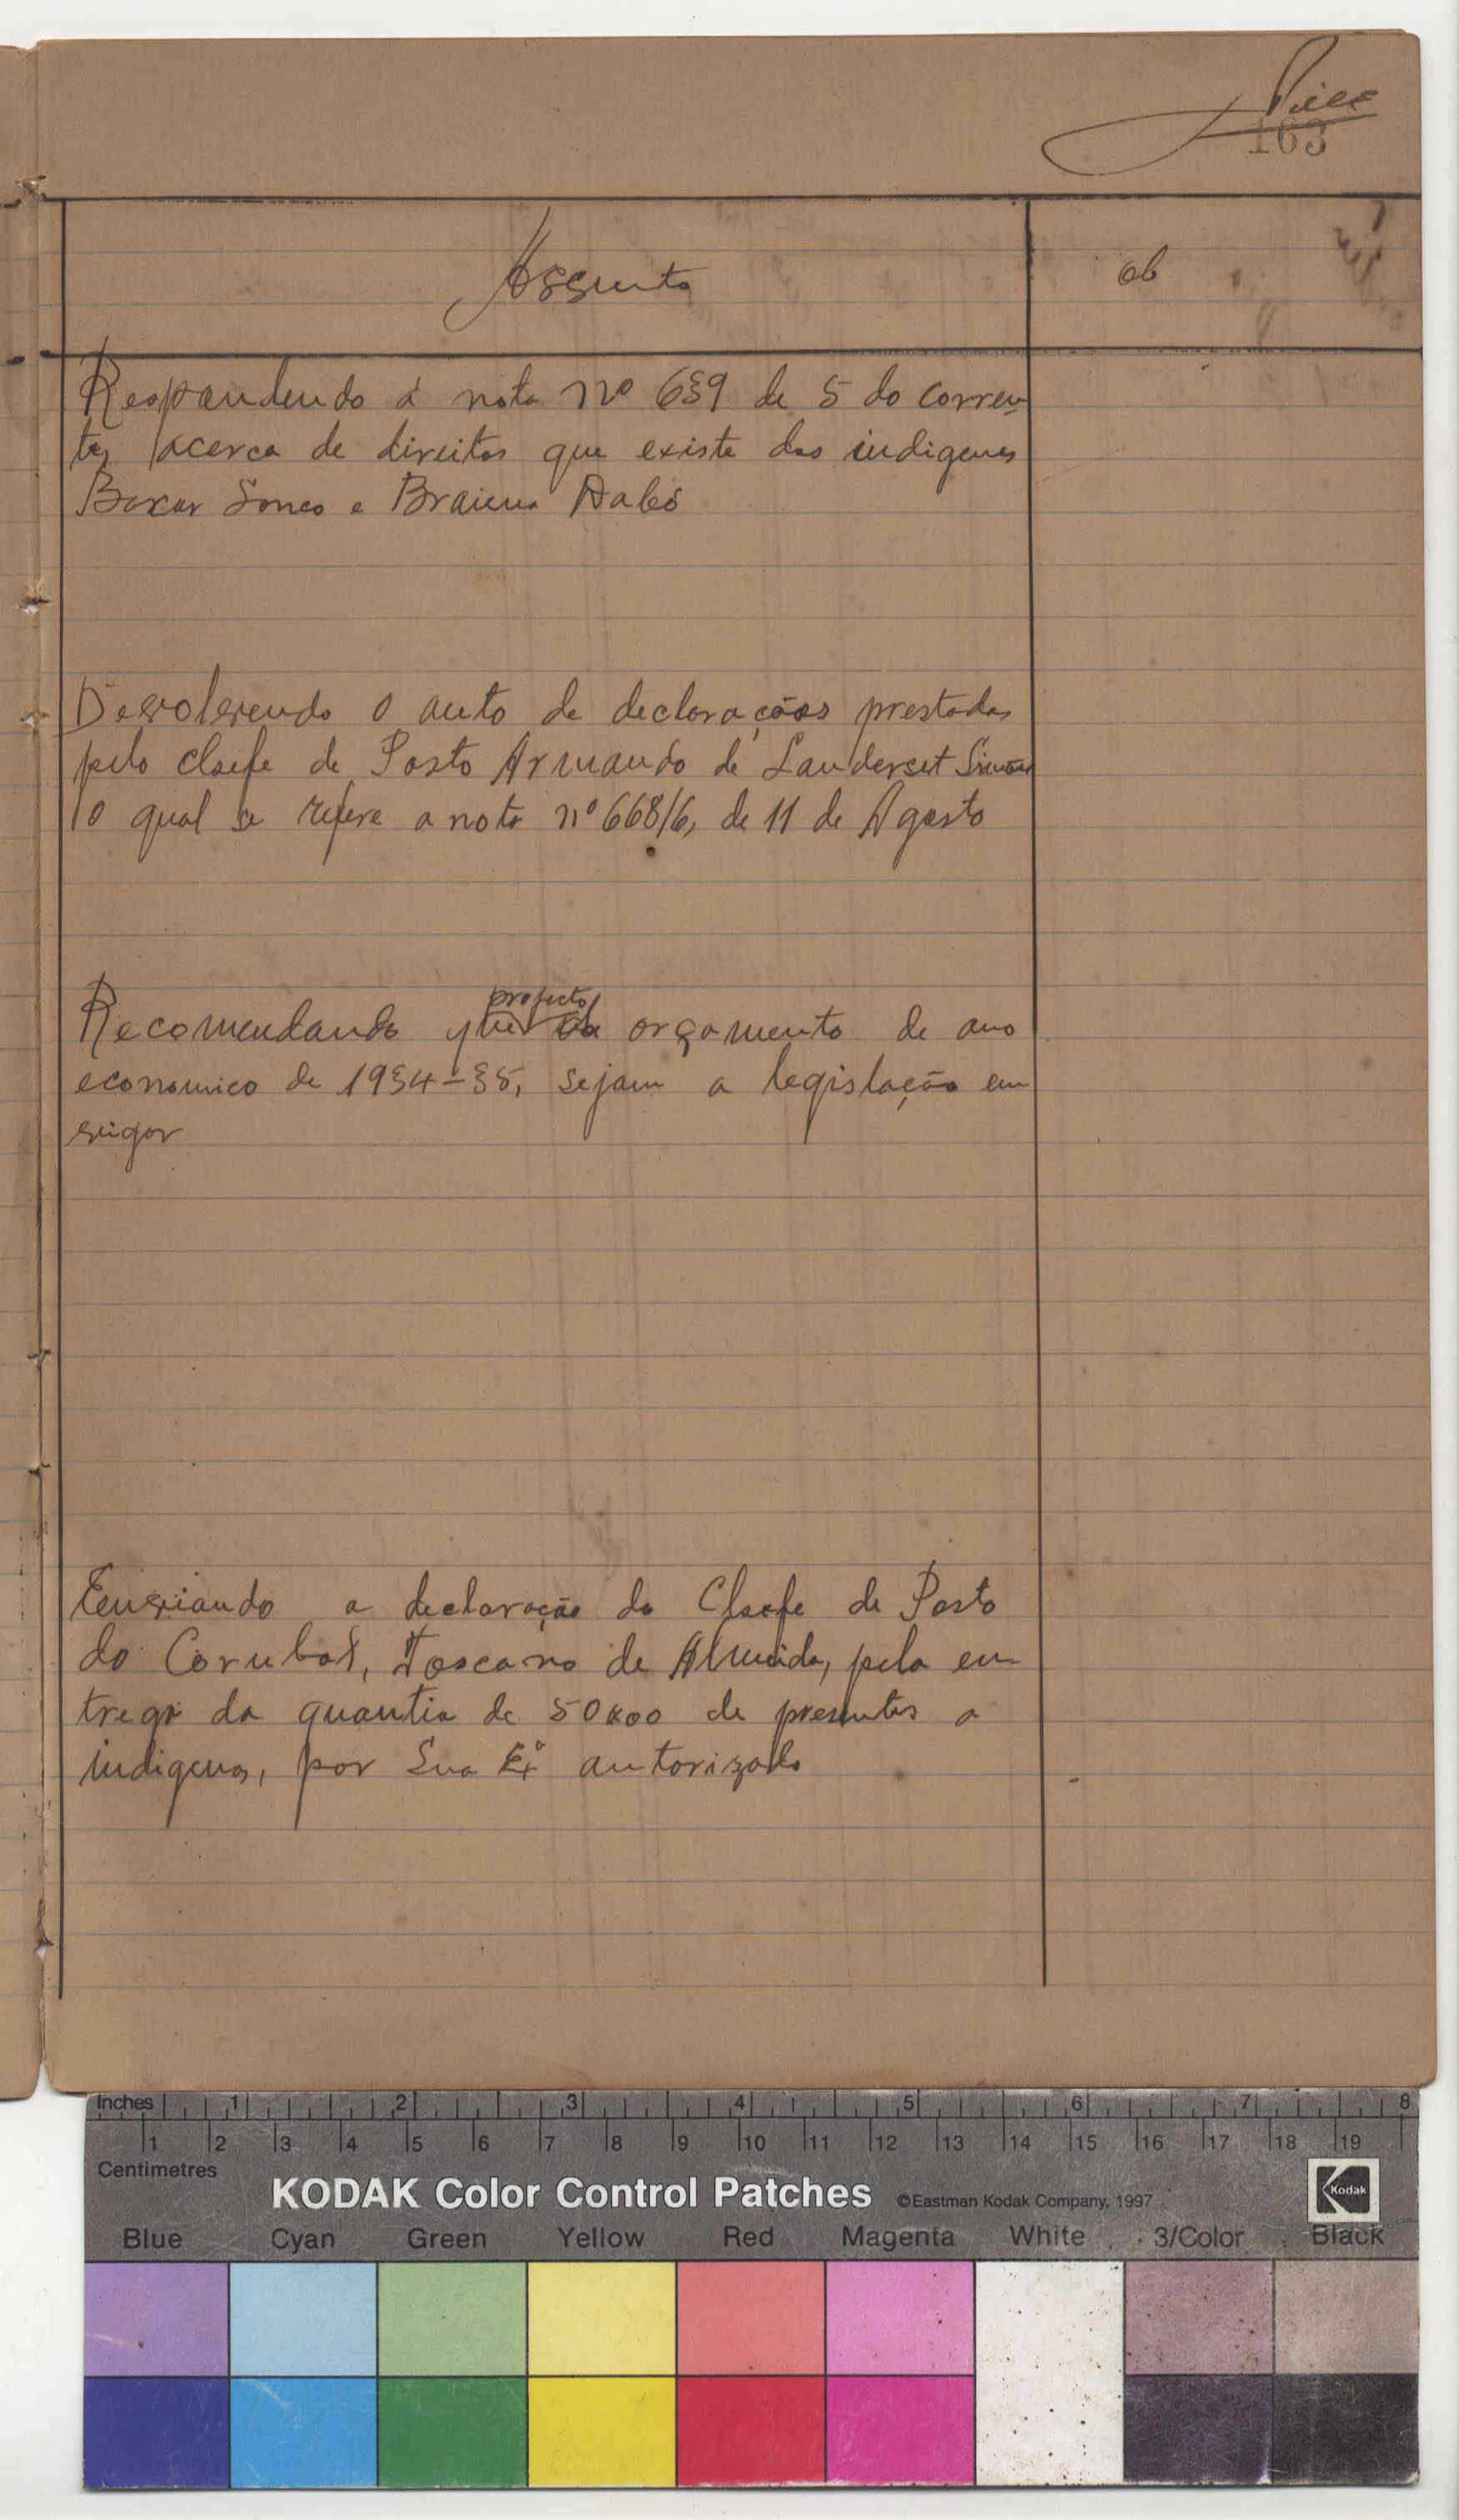 163
Assunto
ob
Respondendo á nota nº 639 de 5 do corren-
te, acerca de direitos que existe dos indigenas
Boxar Sonco e Braima Dabó
Devolvendo o auto de declarações prestadas
pelo chefe de Posto Armando de Landerset Simões
o qual se refere a nota nº 668/6, de 11 de Agosto
projecto
Recomendando que orçamento de ano
economico de 1934-35, sejam a legislação em
vigor
Enviando a declaração do Chefe de Posto
do Corubal, Toscano de Almeida, pela en-
trega da quantia de 50x00 de presentes a
indigenas, por Sua Exª autorizado
Inches 1 2 3 4 5 6 7 8
1 2 3 4 5 6 7 8 9 10 11 12 13 14 15 16 17 18 19
Centimetres
KODAK Color Control Patches ©Eastman Kodak Company, 1997 Kodak
Blue Cyan Green Yellow Red Magenta White 3/Color Black